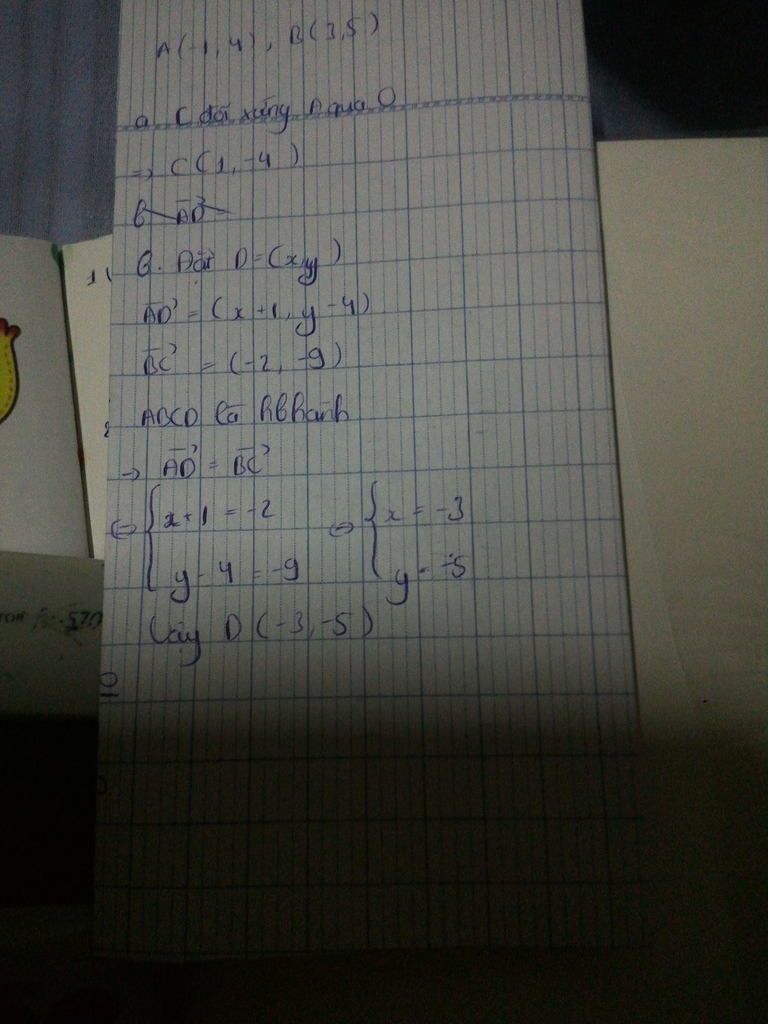 A(-1,4), B(3,5)
a. C đối xứng A qua O
=> C(1,-4)
b. AD
b. Đặt D=(x,y)
AD = (x+1, y-4)
BC = (-2, -9)
ABCD là hbhành
-> AD = BC
<=> { x+1 = -2 <=> { x = -3
y-4 = -9 y = -5
Vậy D(-3,-5)
10